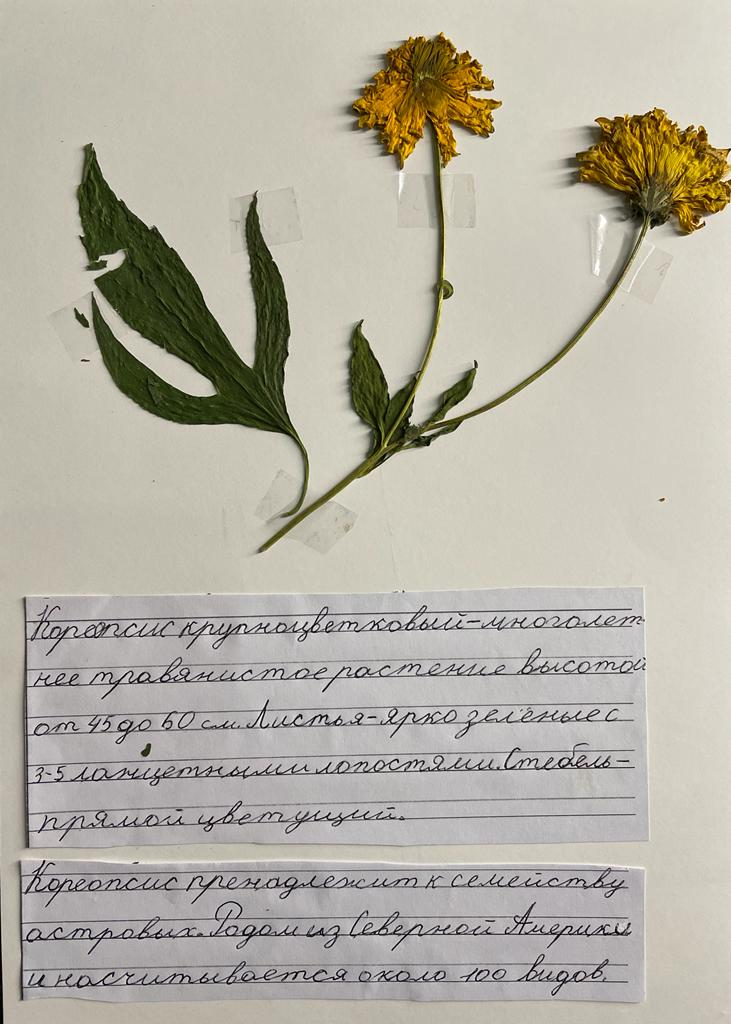 Кореопсис крупноцветковый-многолет-
нее травянистое растение высотой
от 45 до 60 см. Листья-ярко зелёные с
3-5 ланцетными лопостями. Стебель-
прямой цветущий.
Кореопсис пренадлежит к семейству
астровых. Родом из Северной Америки
и насчитывается около 100 видов.